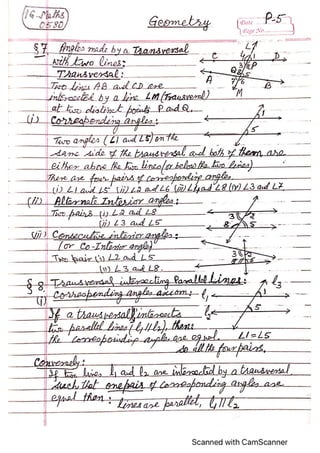 IG-Maths
0580
Geometry
Date
P-5
Page No.
§7. Angles made by a Transversal
with two lines:
Transversal:
Two lines AB and CD are
intersected by a line LM (Transversal)
at two distinct points P and Q.
L
C
D
P
Q
A
B
M
(i) Corresponding angles:
Two angles (∠1 and ∠5) on the
same side of the transversal and both of them are
either above the two lines (or below the two lines)
There are four pairs of corresponding angles.
(i) ∠1 and ∠5 (ii) ∠2 and ∠6 (iii) ∠4 and ∠8 (iv) ∠3 and ∠7
1
5
(ii) Alternate Interior angles:
Two pairs (i) ∠2 and ∠8
(ii) ∠3 and ∠5
3 2
8 5
(iii) Consecutive interior angles:
(or Co-Interior angle)
Two pair (i) ∠2 and ∠5
(ii) ∠3 and ∠8.
3 2
8 5
§8. Transversal intersecting Parallel Lines:
(i) Corresponding angles axiom:
If a transversal intersects
two parallel lines (l1 || l2), then:
the corresponding angles are equal. ∠1 = ∠5
so all the four pairs.
l1
l2
l3
1
5
Conversely:
If two lines l1 and l2 are intersected by a transversal
such that one pair of corresponding angles are
equal then: lines are parallel, l1 || l2
Scanned with CamScanner